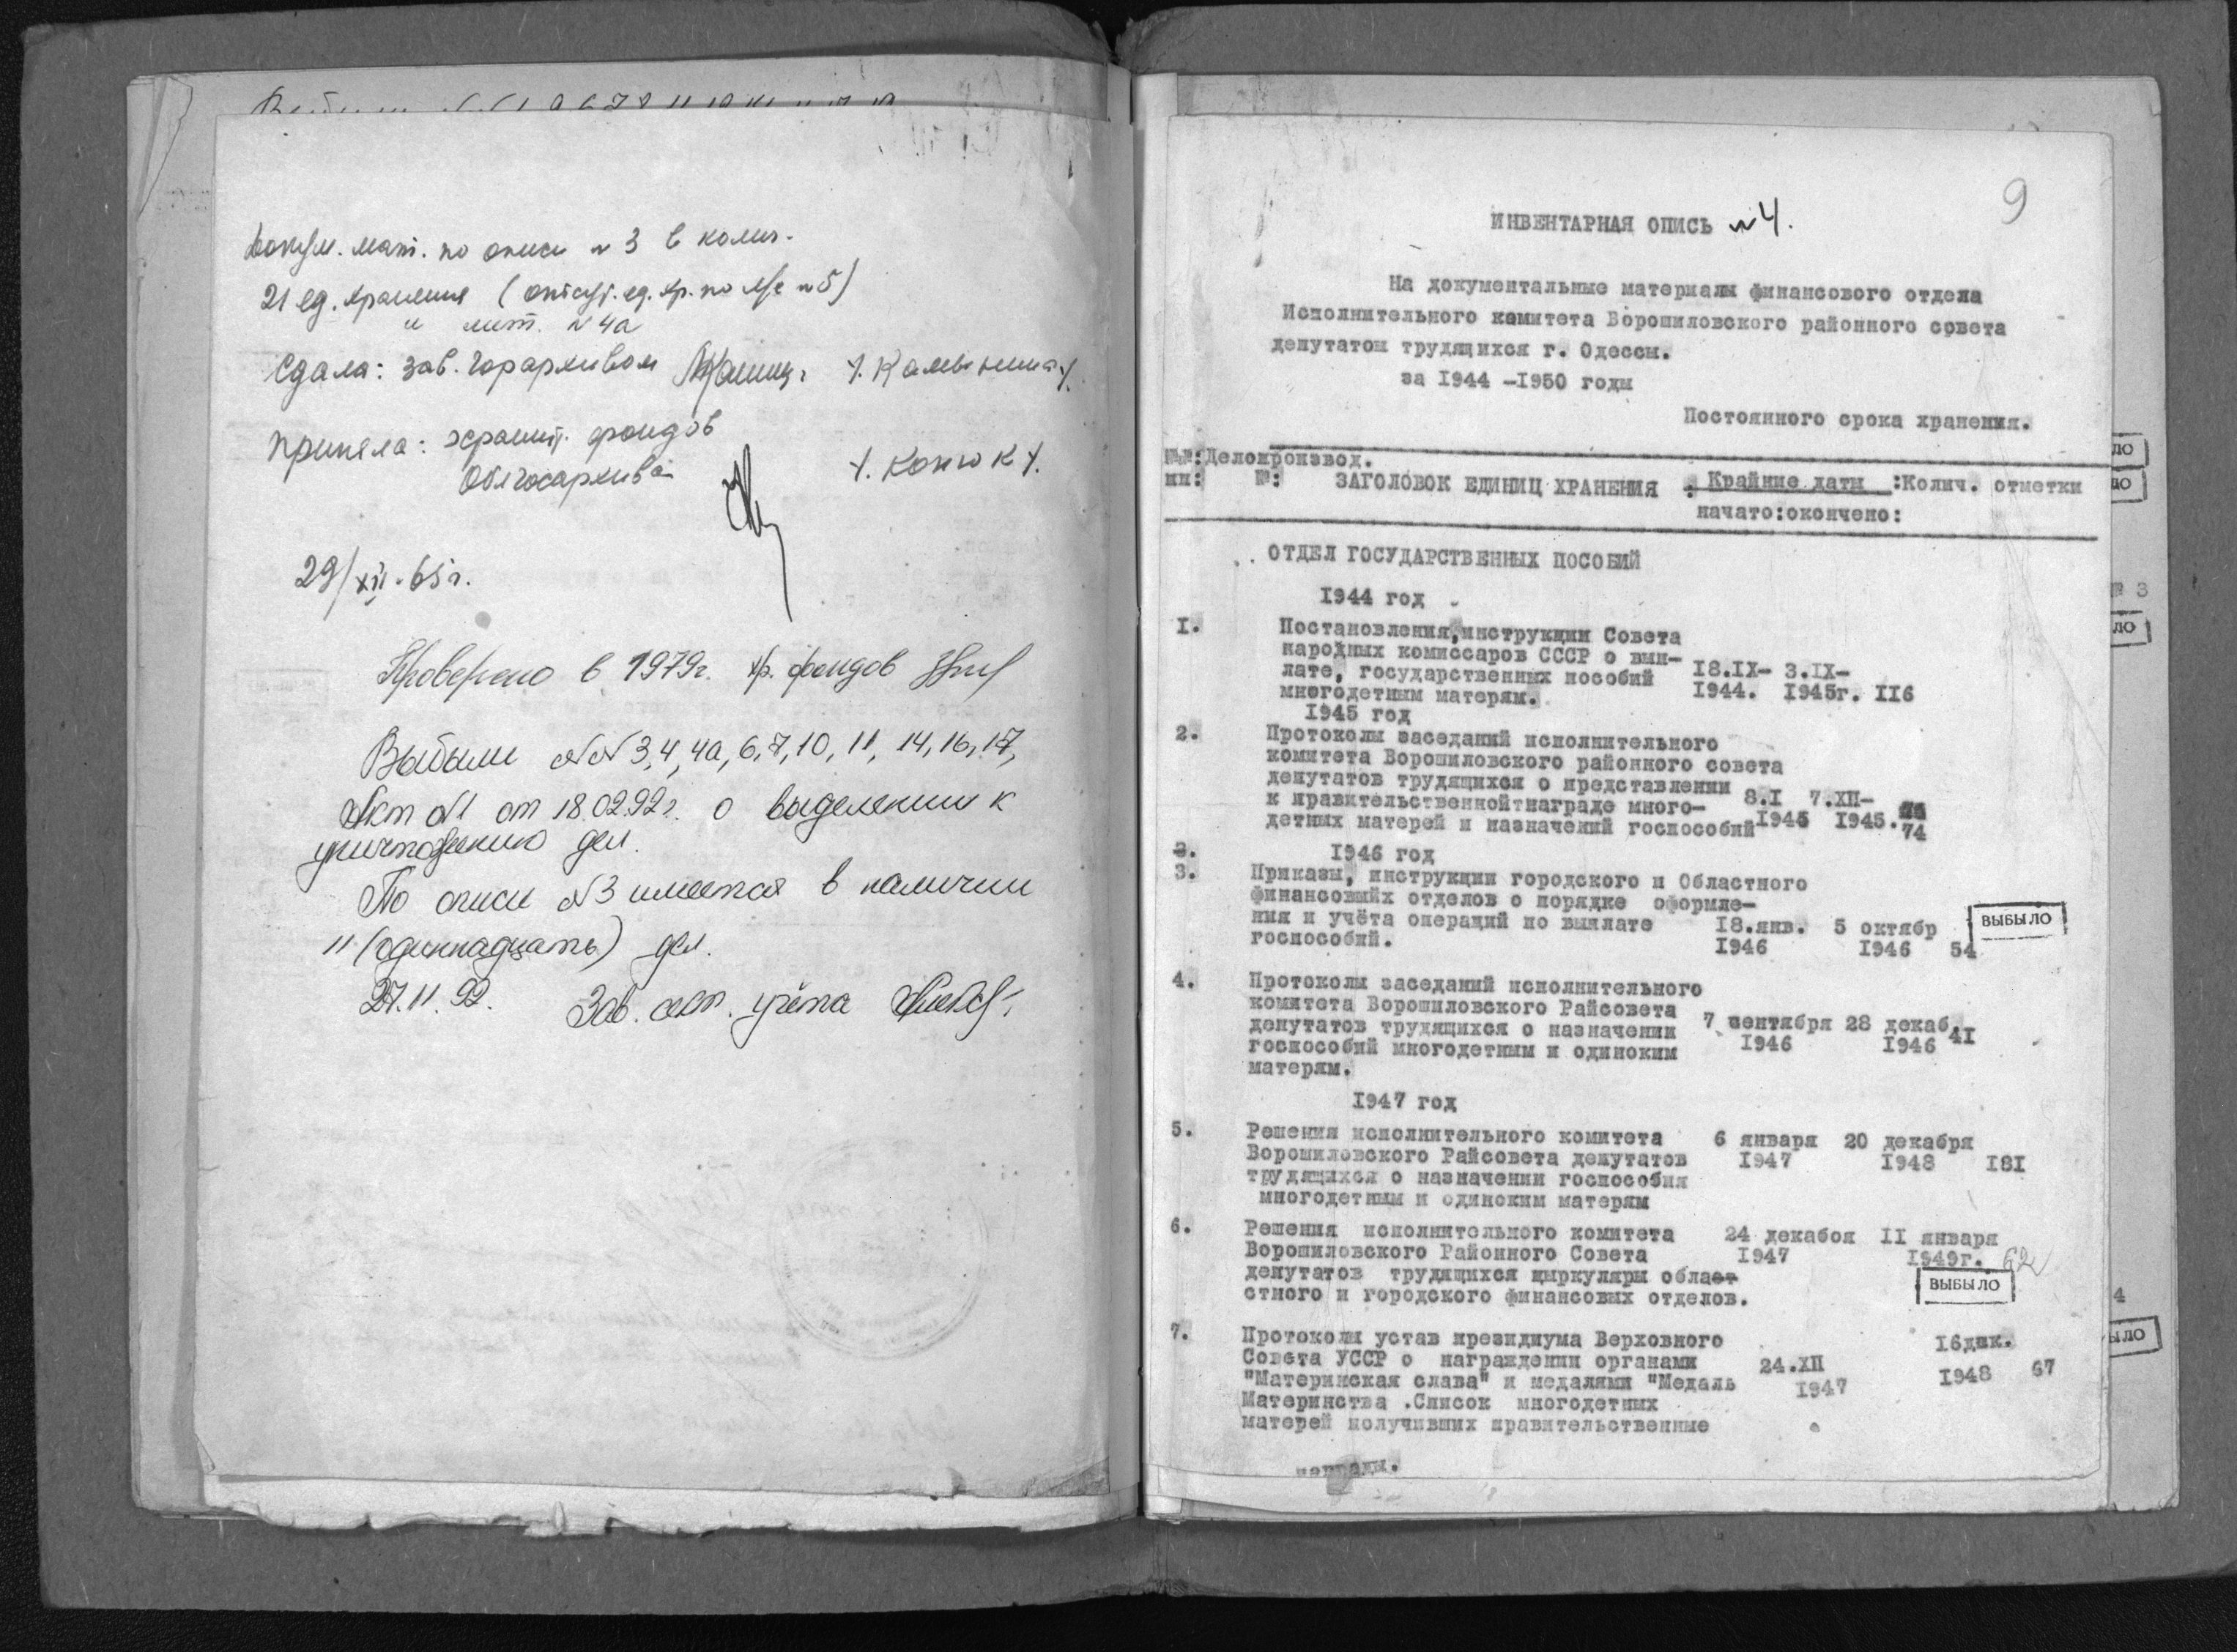 Докум. мат. по описи № 3 в колич.
21 ед. хранения (отсут. ед. хр. по № 5)
и лит. № 4а
Сдала: зав. горархивом
Приняла: хранит. фондов
Облгосархива /. Конюк /.
29/XII-65 г.
Проверено в 1979г. хр. фондов
Выбыли №№ 3, 4, 4а, 6, 7, 10, 11, 14, 16, 17,
Акт №1 от 18.02.92 г. о выделении к
уничтожению дел.
По описи №3 имеются в наличии
11 (одиннадцать) дел.
27.11.92. Зав. отд. учёта
9
ИНВЕНТАРНАЯ ОПИСЬ № 4.
На документальные материалы финансового отдела
Исполнительного комитета Ворошиловского районного совета
депутатом трудящихся г. Одессы.
за 1944 -1950 годы
Постоянного срока хранения.
№№:Делопроизвод.
пп: №: ЗАГОЛОВОК ЕДИНИЦ ХРАНЕНИЯ : Крайние даты :Колич. отметки
начато:окончено:
ОТДЕЛ ГОСУДАРСТВЕННЫХ ПОСОБИЙ
1944 год
I. Постановления,инструкции Совета
народных комиссаров СССР о вып-
лате, государственных пособий 18.IX- 3.IX-
многодетным матерям. 1944. 1945г. 116
1945 год
2. Протоколы заседаний исполнительного
комитета Ворошиловского районного совета
депутатов трудящихся о представлении
к правительственнойтнаграде много- 8.I 7.XII-
детных матерей и назначений госпособий 1945 1945. 74
2. 1946 год
3. Приказы, инструкции городского и Областного
финансовыйх отделов о порядке оформле-
ния и учёта операций по выплате 18.янв. 5 октябр ВЫБЫЛО
госпособий. 1946 1946 54
4. Протоколы заседаний исполнительного
комитета Ворошиловского Райсовета
депутатов трудящихся о назначении 7 сентября 28 декаб.
госпособий многодетным и одиноким 1946 1946 41
матерям.
1947 год
5. Решения исполнительного комитета 6 января 20 декабря
Ворошиловского Райсовета депутатов 1947 1948 181
трудящихся о назначении госпособия
многодетным и одиноким матерям
6. Решения исполнительного комитета 24 декабоя 11 января
Ворошиловского Районного Совета 1947 1949г. 62
депутатов трудящихся цыркуляры област
стного и городского финансовых отделов. ВЫБЫЛО
7. Протоколы устав президиума Верховного 16дек.
Совета УССР о награждении органами 24.XII
"Материнская слава" и медалями "Медаль 1947 1948 67
Материнства .Список многодетных
матерей получивших правительственные
награды.
ЛО
ЛО
№ 3
ЛО
4
ЫЛО